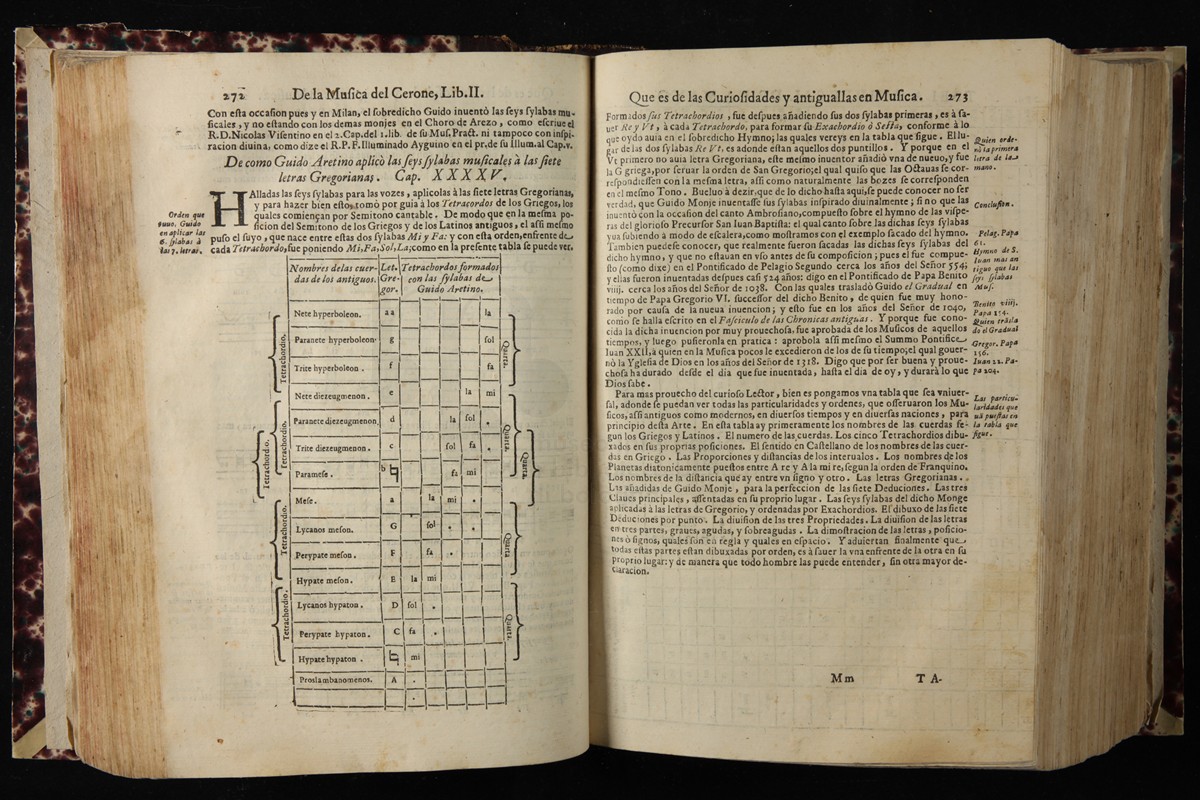 272 De la Musica del Cerone, Lib.II.
Con esta occasion pues y en Milan, el sobredicho Guido inuentò las seys sylabas mu-
sicales, y no estando con los demas monjes en el Choro de Arezo, como escriue el
R.D.Nicolas Visentino en el 2.Cap.del 1.lib. de su Mus.Pract. ni tampoco con inspi-
racion diuina, como dize el R.P.F.Illuminado Ayguino en el pr. de su Illum.al Cap.v.
De como Guido Aretino aplicò las seys sylabas musicales à las siete
letras Gregorianas. Cap. XXXXV.
HAlladas las seys sylabas para las vozes, aplicolas à las siete letras Gregorianas,
y para hazer bien esto, tomò por guia à los Tetracordos de los Griegos, los
quales comiençan por Semitono cantable. De modo que en la mesma po-
sicion del Semitono de los Griegos y de los Latinos antiguos, el assi mesmo
puso el suyo, que nace entre estas dos sylabas Mi y Fa: y con esta orden, enfrente de
cada Tetrachordo, fue poniendo Mi, Fa, Sol, La; como en la presente tabla se puede ver.
Orden que
tuuo. Guido
en aplicar las
6. silabas à
las 7. letras.
Nombres delas cuer-
das de los antiguos.
Let.
Gre-
gor.
Tetrachordos formados
con las sylabas de
Guido Aretino.
Nete hyperboleon. aa la
Paranete hyperboleon. g sol
Trite hyperboleon. f fa
Nete diezeugmenon. e la mi
Paranete diezeugmenon. d la sol .
Trite diezeugmenon. c sol fa .
Paramese. b ♮ fa mi
Mese. a la mi .
Lycanos meson. G sol . .
Perypate meson. F fa .
Hypate meson. E la mi
Lycanos hypaton. D sol .
Perypate hypaton. C fa .
Hypate hypaton. ♮ mi
Proslambanomenos. A .
.
Tetrachordio.
Tetrachordio.
Tetrachordio.
Tetrachordio.
Tetrachordio.
Quarta.
Quarta.
Quarta.
Quarta
Quarta.
Que es de las Curiosidades y antiguallas en Musica. 273
Formados sus Tetrachordios, fue despues añadiendo sus dos sylabas primeras, es à sa-
uer Re y Vt, à cada Tetachordo, para formar su Exachordio ò Sesta, conforme à lo
que oydo auia en el sobredicho Hymno; las quales vereys en la tabla que sigue. El lu-
gar de las dos sylabas Re Vt, es adonde estan aquellos dos puntillos. Y porque en el
Vt primero no auia letra Gregoriana, este mesmo inuentor añadiò vna de nueuo, y fue
la G griega, por seruar la orden de San Gregorio; el qual quiso que las Octauas se cor-
respondiessen con la mesma letra, assi como naturalmente las bozes se corresponden
en el mesmo Tono. Bueluo à dezir, que de lo dicho hasta aqui, se puede conocer no ser
verdad, que Guido Monje inuentasse sus sylabas inspirado diuinalmente; si no que las
inuentò con la occasion del canto Ambrosiano, compuesto sobre el hymno de las vispe-
ras del glorioso Precursor San Iuan Baptista: el qual canto sobre las dichas seys sylabas
yua subiendo à modo de escalera, como mostramos con el exemplo sacado del hymno.
Tambien puedese conocer, que realmente fueron sacadas las dichas seys sylabas del
dicho hymno, y que no estauan en vso antes de su composicion; pues el fue compue-
sto (como dixe) en el Pontificado de Pelagio Segundo cerca los años del Señor 554;
y ellas fueron inuentadas despues casi 524 años: digo en el Pontificado de Papa Benito
viij. cerca los años del Señor de 1038. Con las quales trasladò Guido el Gradual en
tiempo de Papa Gregorio VI. successor del dicho Benito, de quien fue muy hono-
rado por causa de la nueua inuencion; y esto fue en los años del Señor de 1040,
como se halla escrito en el Fasciculo de las Chronicas antiguas. Y porque fue cono-
cida la dicha inuencion por muy prouechosa, fue aprobada de los Musicos de aquellos
tiempos, y luego pusieronla en pratica: aprobola assi mesmo el Summo Pontifice
Iuan XXII, à quien en la Musica pocos le excedieron de los de su tiempo; el qual gouer-
nò la Yglesia de Dios en los años del Señor de 1318. Digo que por ser buena y proue-
chosa ha durado desde el dia que fue inuentada, hasta el dia de oy, y durarà lo que
Dios sabe.
Para mas prouecho del curioso Lector, bien es pongamos vna tabla que sea vniuer-
sal, adonde se puedan ver todas las particularidades y ordenes, que osseruaron los Mu-
sicos, assi antiguos como modernos, en diuersos tiempos y en diuersas naciones, para
principio desta Arte. En esta tabla ay primeramente los nombres de las cuerdas se-
gun los Griegos y Latinos. El numero de las cuerdas. Los cinco Tetrachordios dibu-
xados en sus proprias posiciones. El sentido en Castellano de los nombres de las cuer-
das en Griego. Las Proporciones y distancias de los interualos. Los nombres de los
Planetas diatonicamente puestos entre A re y A la mi re, segun la orden de Franquino.
Los nombres de la distancia que ay entre vn signo y otro. Las letras Gregorianas.
Las añadidas de Guido Monje, para la perfeccion de las siete Deduciones. Las tres
Claues principales, assentadas en su proprio lugar. Las seys sylabas del dicho Monge
aplicadas à las letras de Gregorio, y ordenadas por Exachordios. El dibuxo de las siete
Deduciones por punto. La diuision de las tres Propriedades. La diuision de las letras
en tres partes, graues, agudas, y sobreagudas. La dimostracion de las letras, posicio-
nes ò signos, quales son en regla y quales en espacio. Y aduiertan finalmente que
todas estas partes estan dibuxadas por orden, es à sauer la vna enfrente de la otra en su
proprio lugar: y de manera que todo hombre las puede entender, sin otra mayor de-
claracion.
Quien orde-
nò la primera
letra de la
mano.
Conclusion.
Pelag. Papa
61.
Hymno de S.
Iuan mas an
tiguo que las
seys sylabas
Mus.
Benito viij.
Papa 154.
Quien trasla
do el Gradual
Gregor. Papa
156.
Iuan 22. Pa-
pa 204.
Las particu-
laridades que
uà puestas en
la tabla que
sigue.
Mm TA-